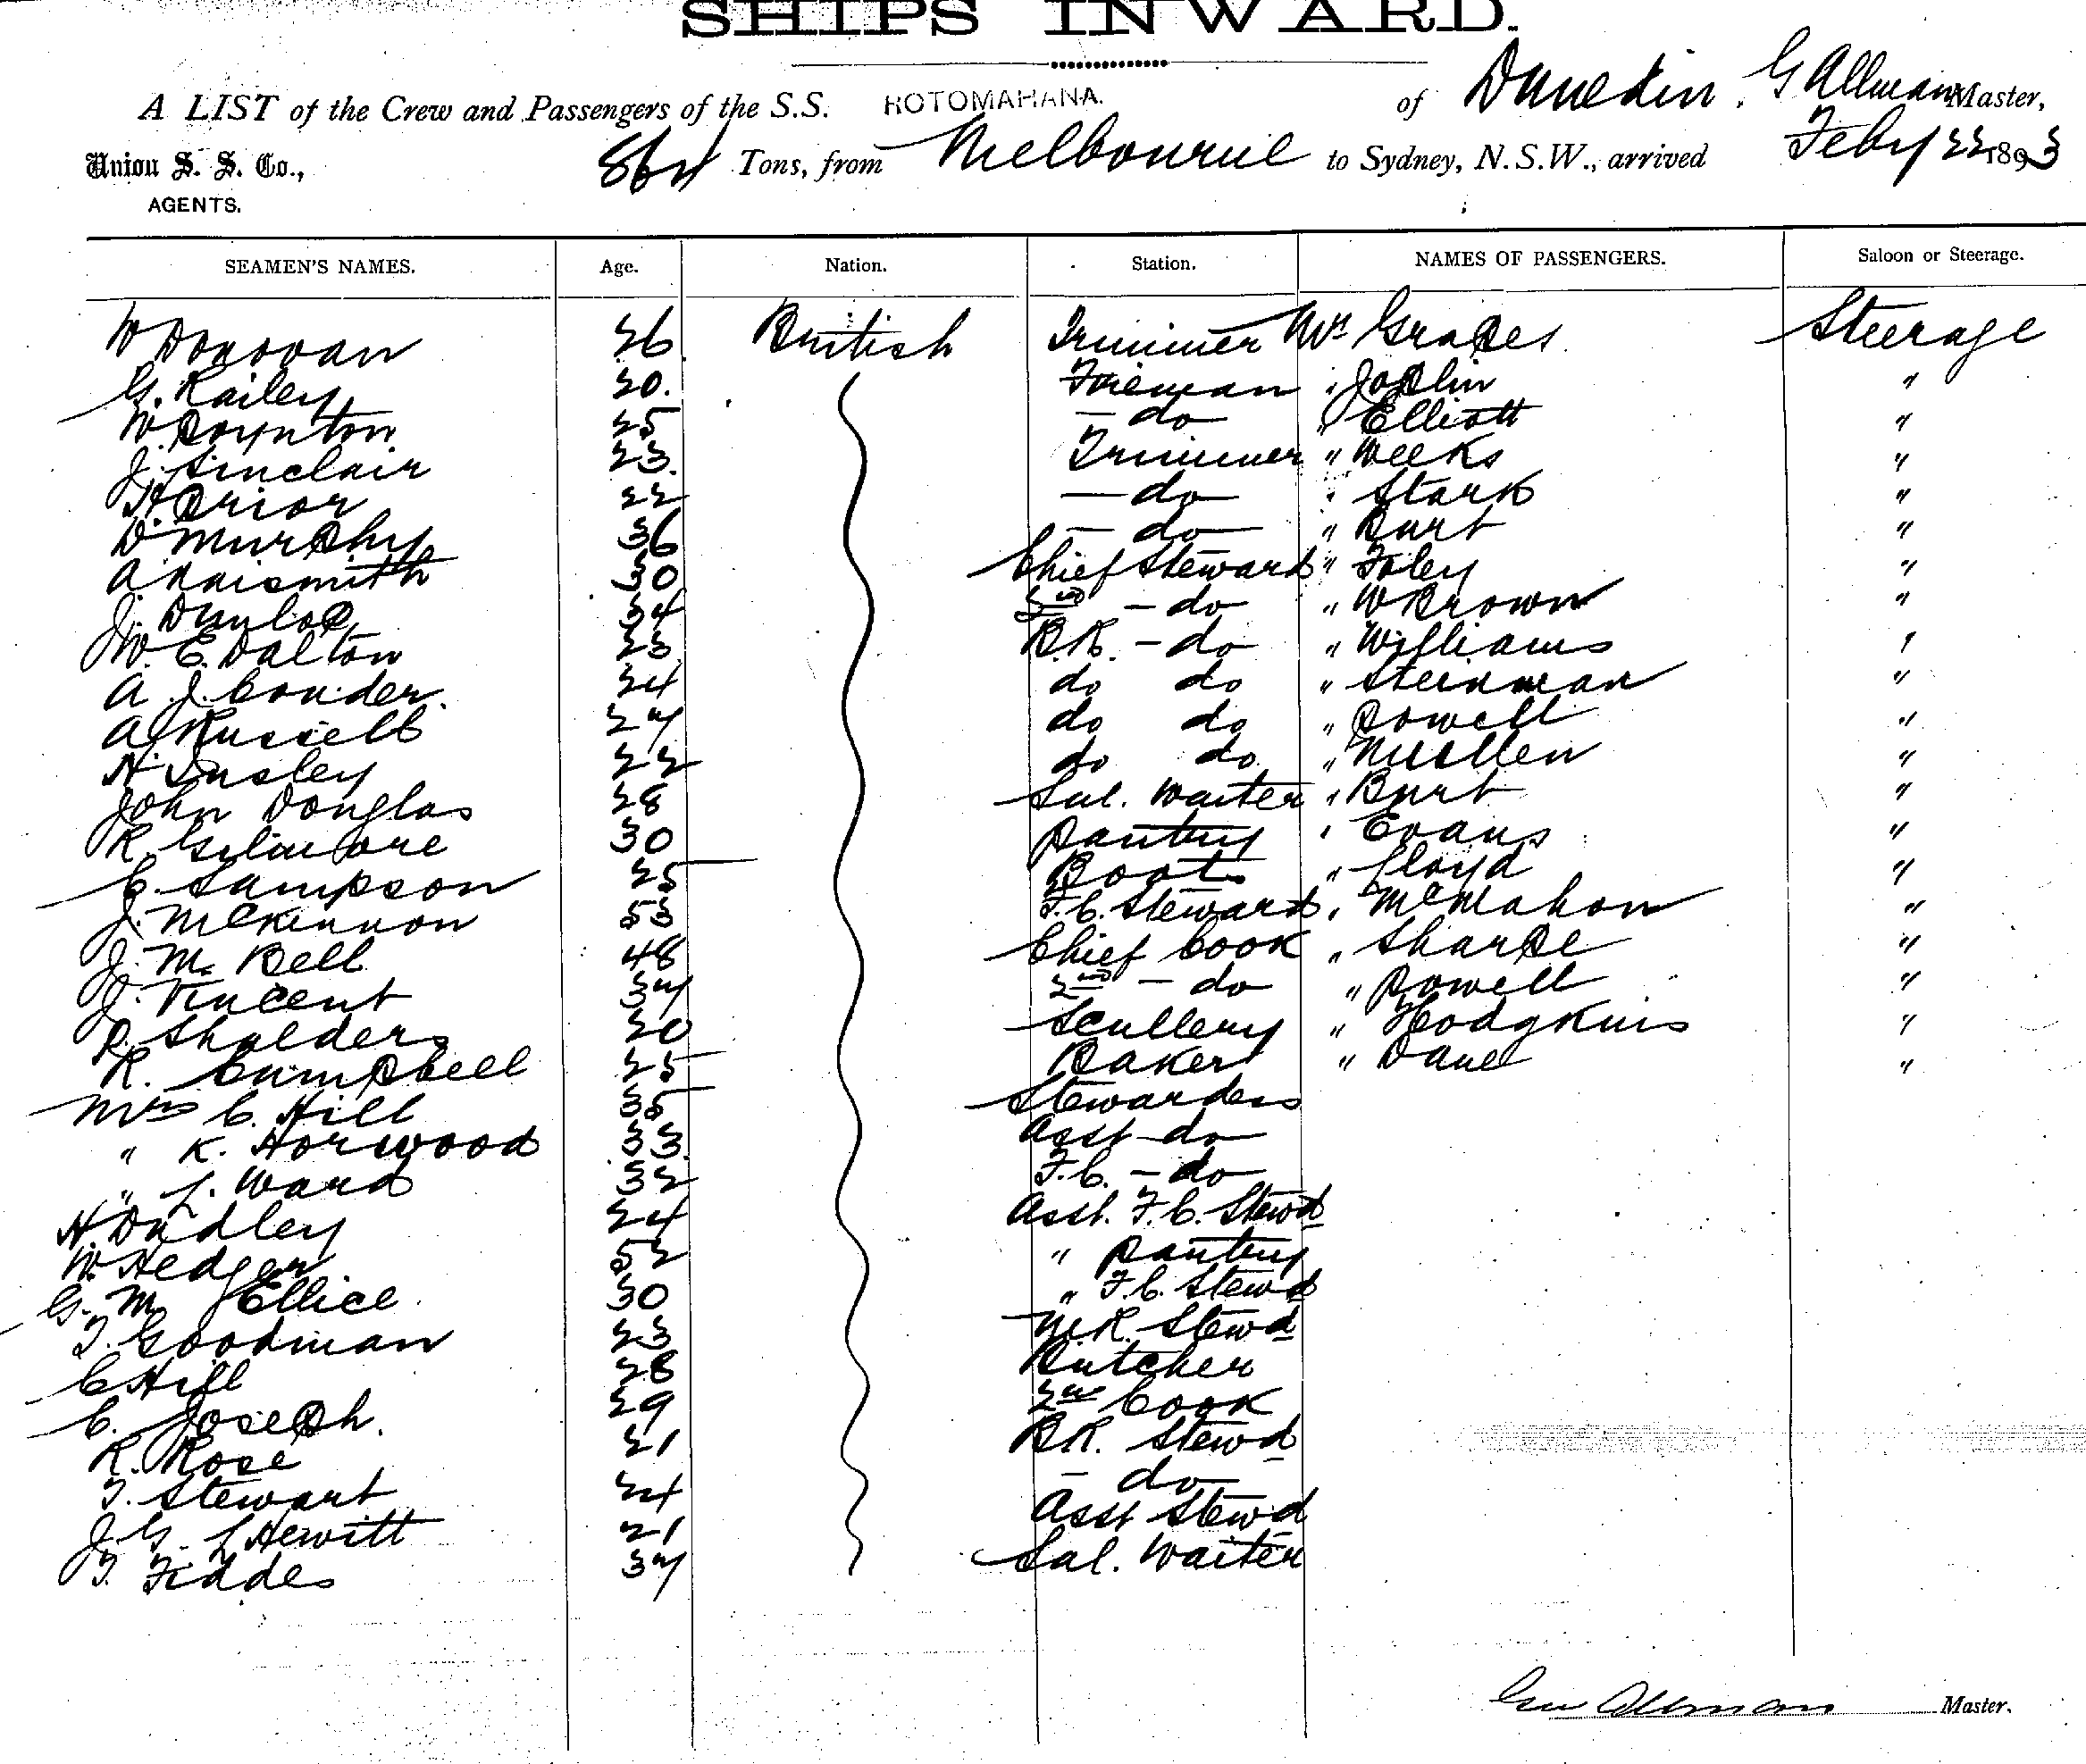 SHIPS INWARD.
A LIST of the Crew and Passengers of the S.S. ROTOMAHANA. of Dunedin. G Allman Master,
Union S. S. Co., 864 Tons, from Melbourne to Sydney, N.S.W., arrived Feby 22 1893
AGENTS.
SEAMEN'S NAMES. Age. Nation. Station. NAMES OF PASSENGERS. Saloon or Steerage.
W Donovan 26 British Trimmer Mr Grapes Steerage
G. Railey 20. Fireman " Joplin "
W. Poynton 25 - do " Elliott "
J. Sinclair 23. Trimmer " Weeks "
H Prior 22 - do " Stark "
D. Murphy 36 - do " Burt "
A Naismith 30 Chief Steward " Foley "
J. Dunlop 34 2nd - do " W Brown "
W. E. Dalton 23 B.R. - do " Williams "
A. J. Conder. 24 do do " Steinman "
A J Russell 27 do do " Powell "
H Insley 22 do do " Muellen "
John Douglas 28 Sal. Waiter " Burt "
R. Gilmore 30 Pantry " Evans "
C. Sampson 25 Boots " Lloyd "
J. McKinnon 53 F.C. Steward " McMahon "
J. M. Bell 48 Chief Cook " Sharpe "
J. Vincent 37 2nd - do " Powell "
P. Shalders 20 Scullery " Hodgkins "
R. Campbell 25 Baker " Dane "
Mrs C. Hill 35 Stewardess
" K. Horwood 33. Asst do
" L. Ward 32 F.C. - do
H. Dudley 24 Asst. F.C. Stewd
W. Hedger 52 " Pantry
G. M. Ellice 30 " F.C. Stewd
T. Goodman 23 M.R. Stewd
C Hill 28 Butcher
C. Joseph. 29 2nd Cook
R. Rose 21 B.R. Stewd
T. Stewart 24 - do
J. G. L Hewitt 21 Asst Stewd
T. Fiddes 37 Sal. Waiter
Geo Allman Master.